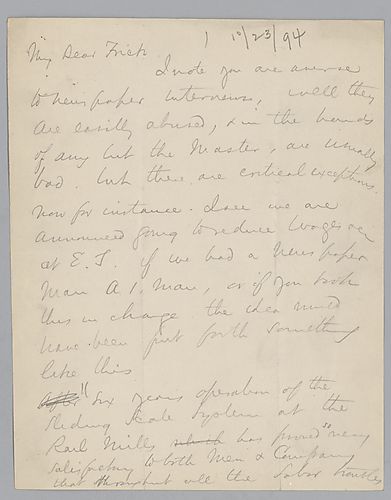 1 10/23/94
My Dear Frick
I note you are averse
to newspaper interviews, well they
are easilly abused, & in the hands
of any but the Master, are usually
bad. but there are critical exceptions.
now for instance. I see we are
announced going to reduce wages
at E.T. if we had a newspaper
man A.1. man, or if you took
this in charge the idea
have been put forth something
like this
After " Six years operation of the
Sliding Scale System at the
Rail Mills which has proved very
satisfactory to both Men & Company
that throughout all the labor troubles